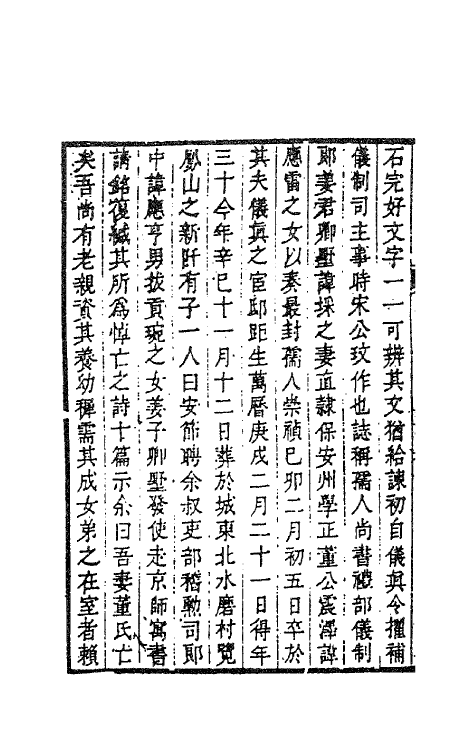 石完好文字一一可辨其文猶給諫初自儀眞令擢補
儀制司主事時宋公玫作也誌稱孺人尚書禮部儀制
郎姜君卿墅諱埰之妻直隸保安州學正董公震澤諱
應雷之女以奏最封孺人崇禎己卯二月初五日卒於
其夫儀眞之宦邸距生萬曆庚戌二月二十一日得年
三十今年辛巳十一月十二日葬於城東北水磨村覽
鳳山之新阡有子一人曰安節聘余叔吏部稽勳司郎
中諱應亨男拔貢琬之女姜子卿墅發使走京師寓書
請銘復緘其所爲悼亡之詩十篇示余曰吾妻董氏亡
矣吾尚有老親資其養幼穉需其成女弟之在室者賴